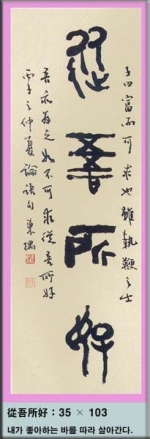 子曰富而可求也雖執鞭之士
從吾所好
吾亦為之如不可求從吾所好
丙子之仲夏論語句東
從吾所好 : 35 × 103
내가 좋아하는 바를 따라 살아간다.